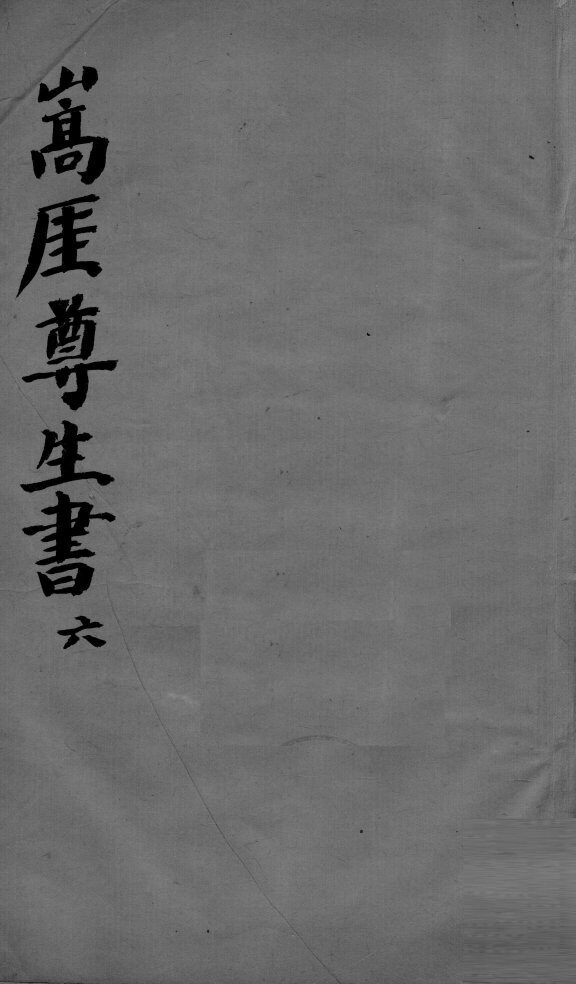 嵩厓尊生書六